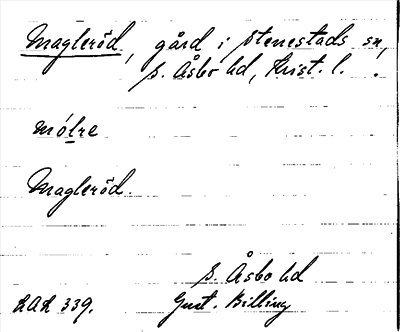 Magleröd, gård i Stenestads sn,
S. Åsbo hd, Krist. l.
mólre
Magleröd.
S. Åsbo hd
RAÄ 339. Gust. Billing